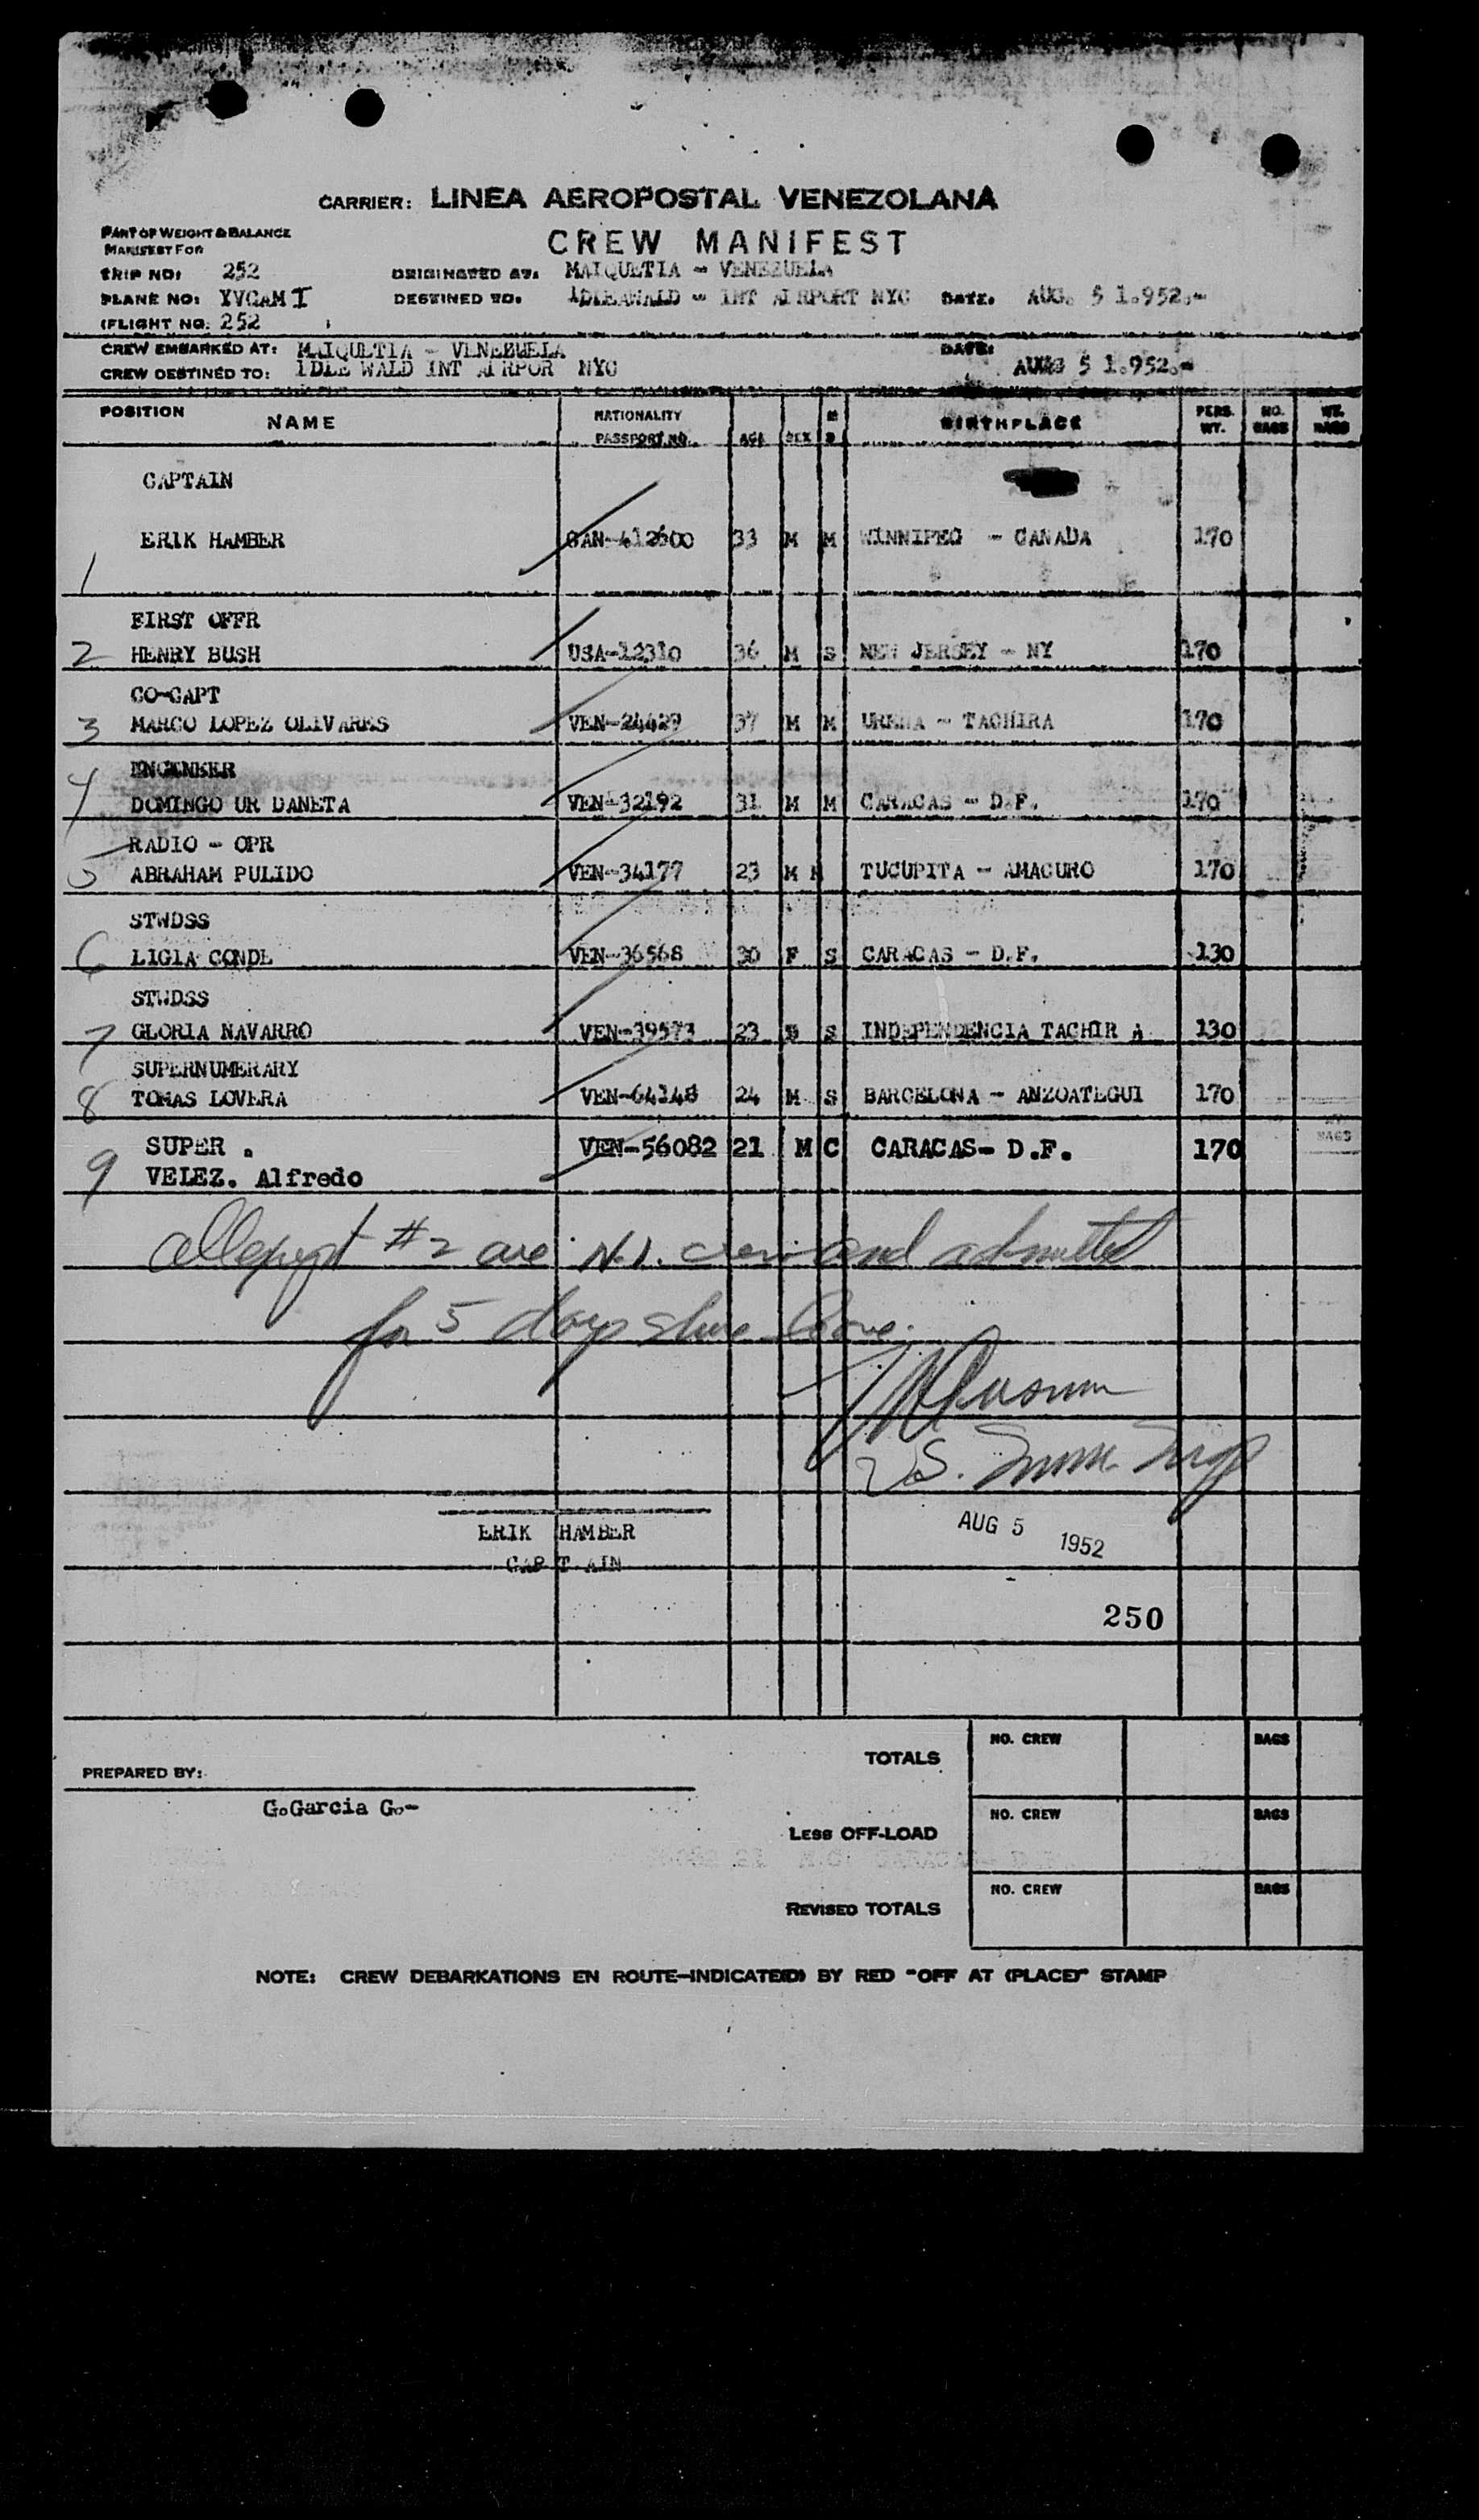 CARRIER: LINEA AEROPOSTAL VENEZOLANA
PART OF WEIGHT & BALANCE
MANIFEST FOR
CREW MANIFEST
TRIP NO: 252 ORIGINATED AT: MAIQUETIA - VENEZUELA
PLANE NO: YVCAMI DESTINED TO: IDLEAWALD - INT AIRPORT NYC DATE: AUG. 5 1.952.-
FLIGHT NO: 252
CREW EMBARKED AT: MAIQUETIA - VENEZUELA DATE:
CREW DESTINED TO: IDLE WALD INT AIRPOR NYC AUG 5 1.952.-
POSITION NAME NATIONALITY PASSPORT NO. AGE SEX M S BIRTHPLACE PERS. WT. NO. BAGS WT. BAGS
CAPTAIN
ERIK HAMBER CAN-412600 33 M M WINNIPEG - CANADA 170
1
FIRST OFFR
2 HENRY BUSH USA-12310 36 M S NEW JERSEY - NY 170
CO-CAPT
3 MARCO LOPEZ OLIVARES VEN-24429 37 M M UREÑA - TACHIRA 170
4 ENGINEER
DOMINGO UR DANETA VEN-32192 31 M M CARACAS - D.F. 170
RADIO - OPR
5 ABRAHAM PULIDO VEN-34177 23 M M TUCUPITA - AMACURO 170
STWDSS
6 LIGIA CONDE VEN-36568 30 F S CARACAS - D.F. 130
STWDSS
7 GLORIA NAVARRO VEN-39573 23 S INDEPENDENCIA TACHIR A 130
SUPERNUMERARY
8 TOMAS LOVERA VEN-64148 24 M S BARCELONA - ANZOATEGUI 170
SUPER . VEN-56082 21 M C CARACAS- D.F. 170
9 VELEZ. Alfredo
All except #2 are N.I. crew and admitted
for 5 days shore leave.
U.S. Imm. Insp
ERIK HAMBER AUG 5 1952
CAPT AIN
250
TOTALS NO. CREW BAGS
PREPARED BY:
G.Garcia G.-
LESS OFF-LOAD NO. CREW BAGS
REVISED TOTALS NO. CREW BAGS
NOTE: CREW DEBARKATIONS EN ROUTE-INDICATED BY RED "OFF AT (PLACE)" STAMP